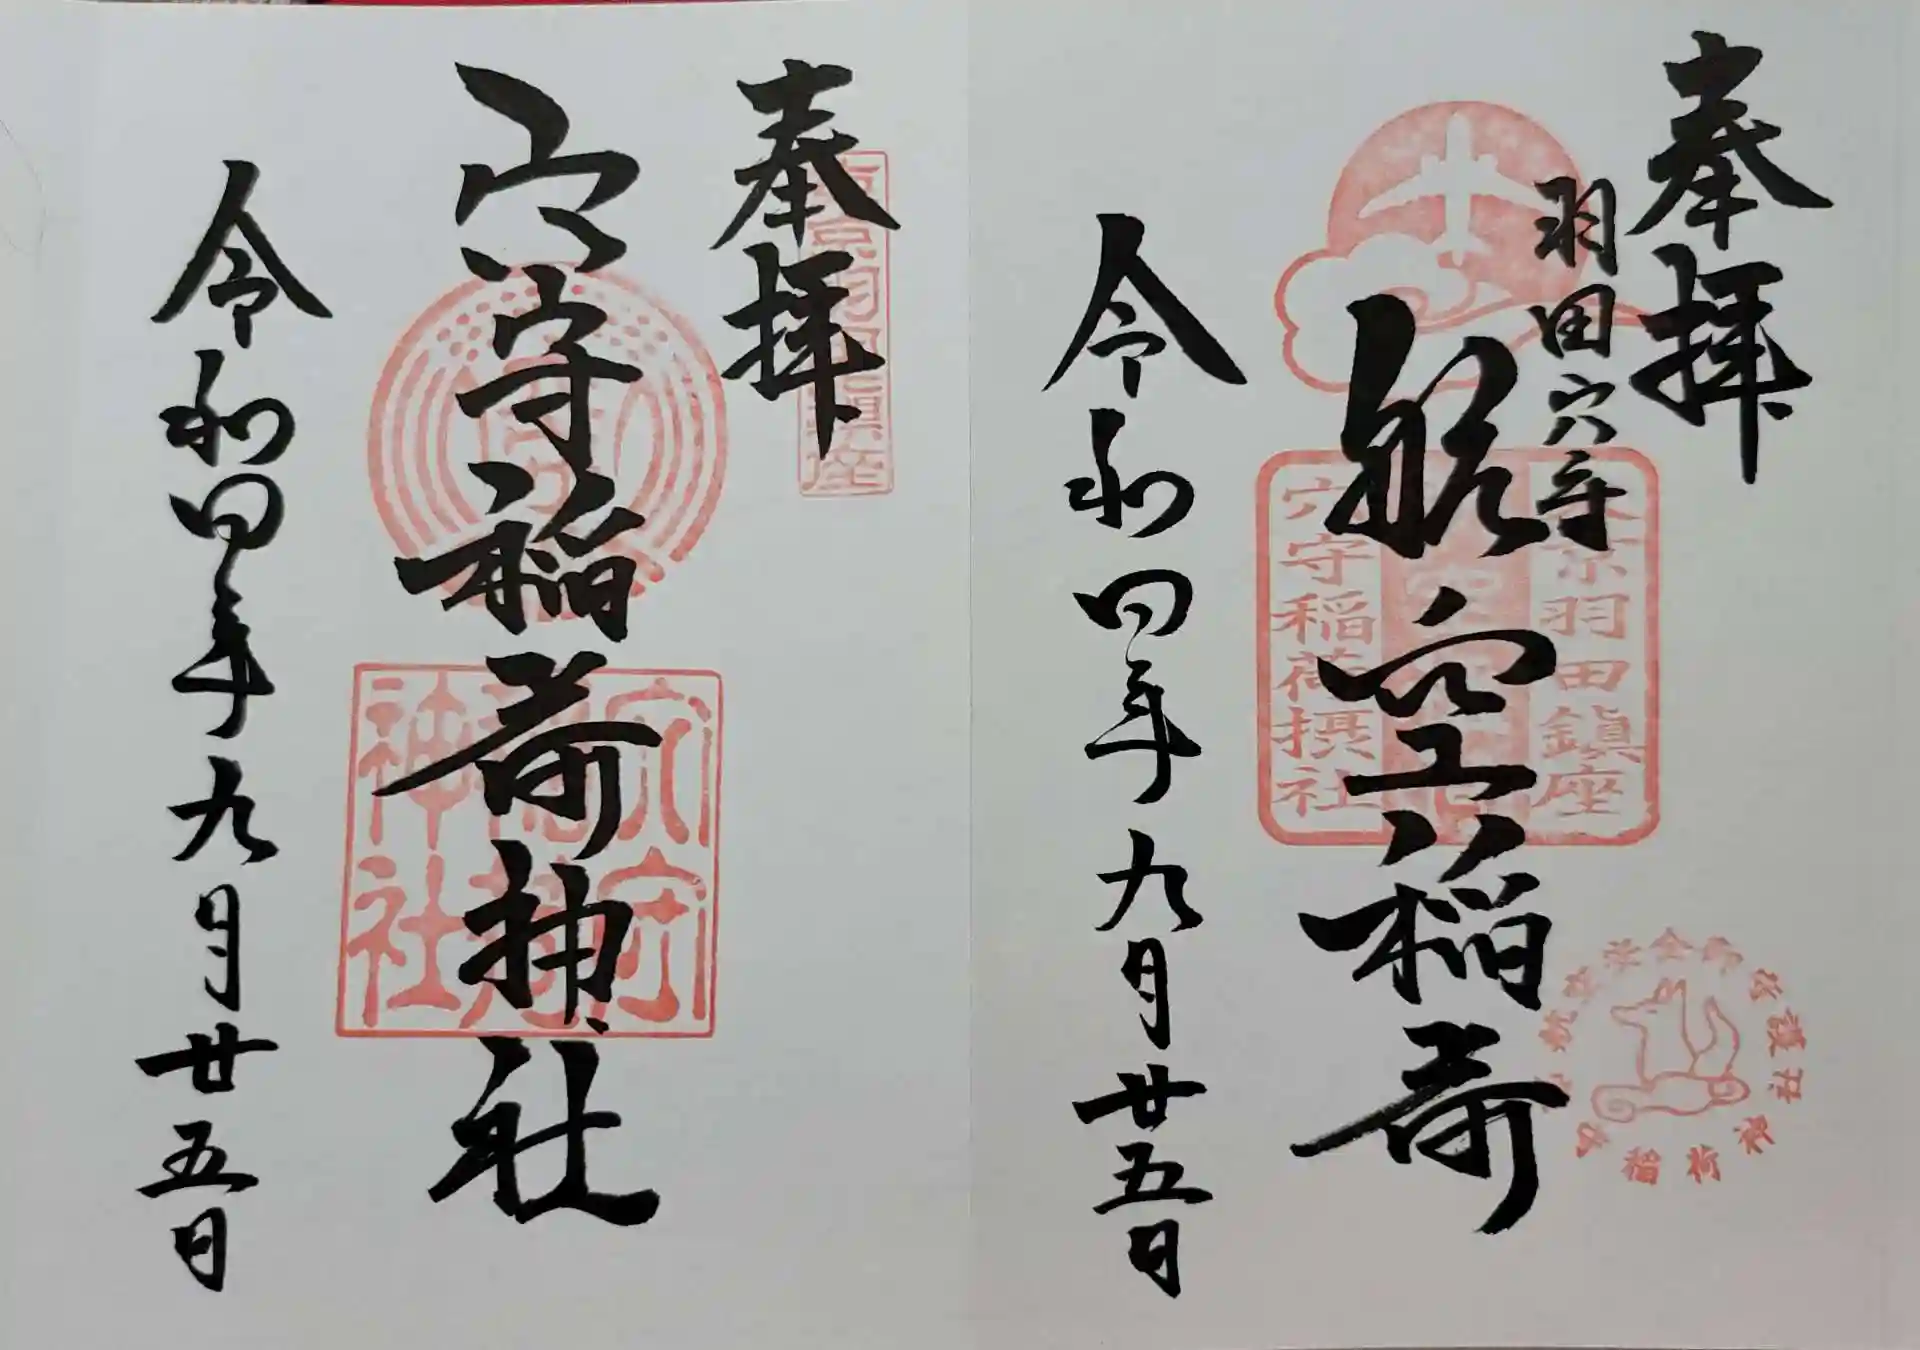 奉拝
羽田穴守
航空稲荷
令和四年九月廿五日
東京羽田鎮座
穴守稲荷摂社
奉拝
穴守稲荷神社
令和四年九月廿五日
東京羽田鎮座
穴守
稲荷
神社